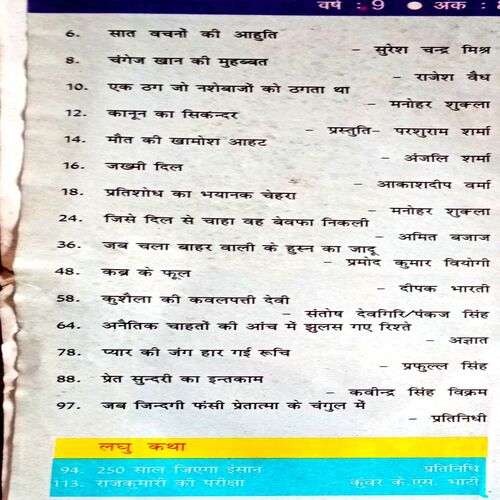 वर्ष : 9 ● अंक :
6. सात वचनों की आहुति
– सुरेश चन्द्र मिश्र
8. चंगेज खान की मुहब्बत
– राजेश वैध
10. एक ठग जो नशेबाजों को ठगता था
– मनोहर शुक्ला
12. कानून का सिकन्दर
– प्रस्तुति– परशुराम शर्मा
14. मौत की खामोश आहट
– अंजलि शर्मा
16. जख्मी दिल
– आकाशदीप वर्मा
18. प्रतिशोध का भयानक चेहरा
– मनोहर शुक्ला
24. जिसे दिल से चाहा वह बेवफा निकली
– अमित बजाज
36. जब चला बाहर वाली के हुस्न का जादू
– प्रमोद कुमार वियोगी
48. कब्र के फूल
– दीपक भारती
58. कुशैला की कवलपत्ती देवी
– संतोष देवगिरि/पंकज सिंह
64. अनैतिक चाहतों की आंच में झुलस गए रिश्ते
– अज्ञात
78. प्यार की जंग हार गई रूचि
– प्रफुल्ल सिंह
88. प्रेत सुन्दरी का इन्तकाम
– कवीन्द्र सिंह विक्रम
97. जब जिन्दगी फंसी प्रेतात्मा के चंगुल में
– प्रतिनिधी
लघु कथा
94. 250 साल जिएगा इंसान प्रतिनिधि
113. राजकुमारी की परीक्षा कुंवर के.एस. भाटी